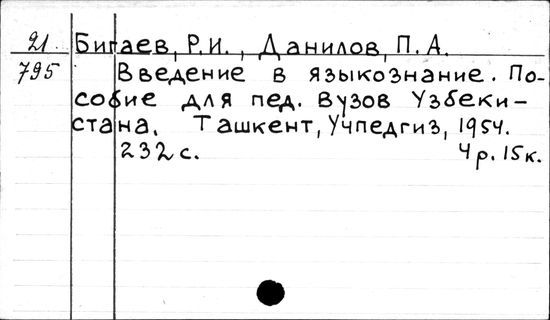 21
795
Бигаев, Р.И., Данилов, П.А.
Введение в языкознание. По-
собие для пед. вузов Узбеки-
стана. Ташкент, Учпедгиз, 1954.
232 с. 4 р. 15 к.